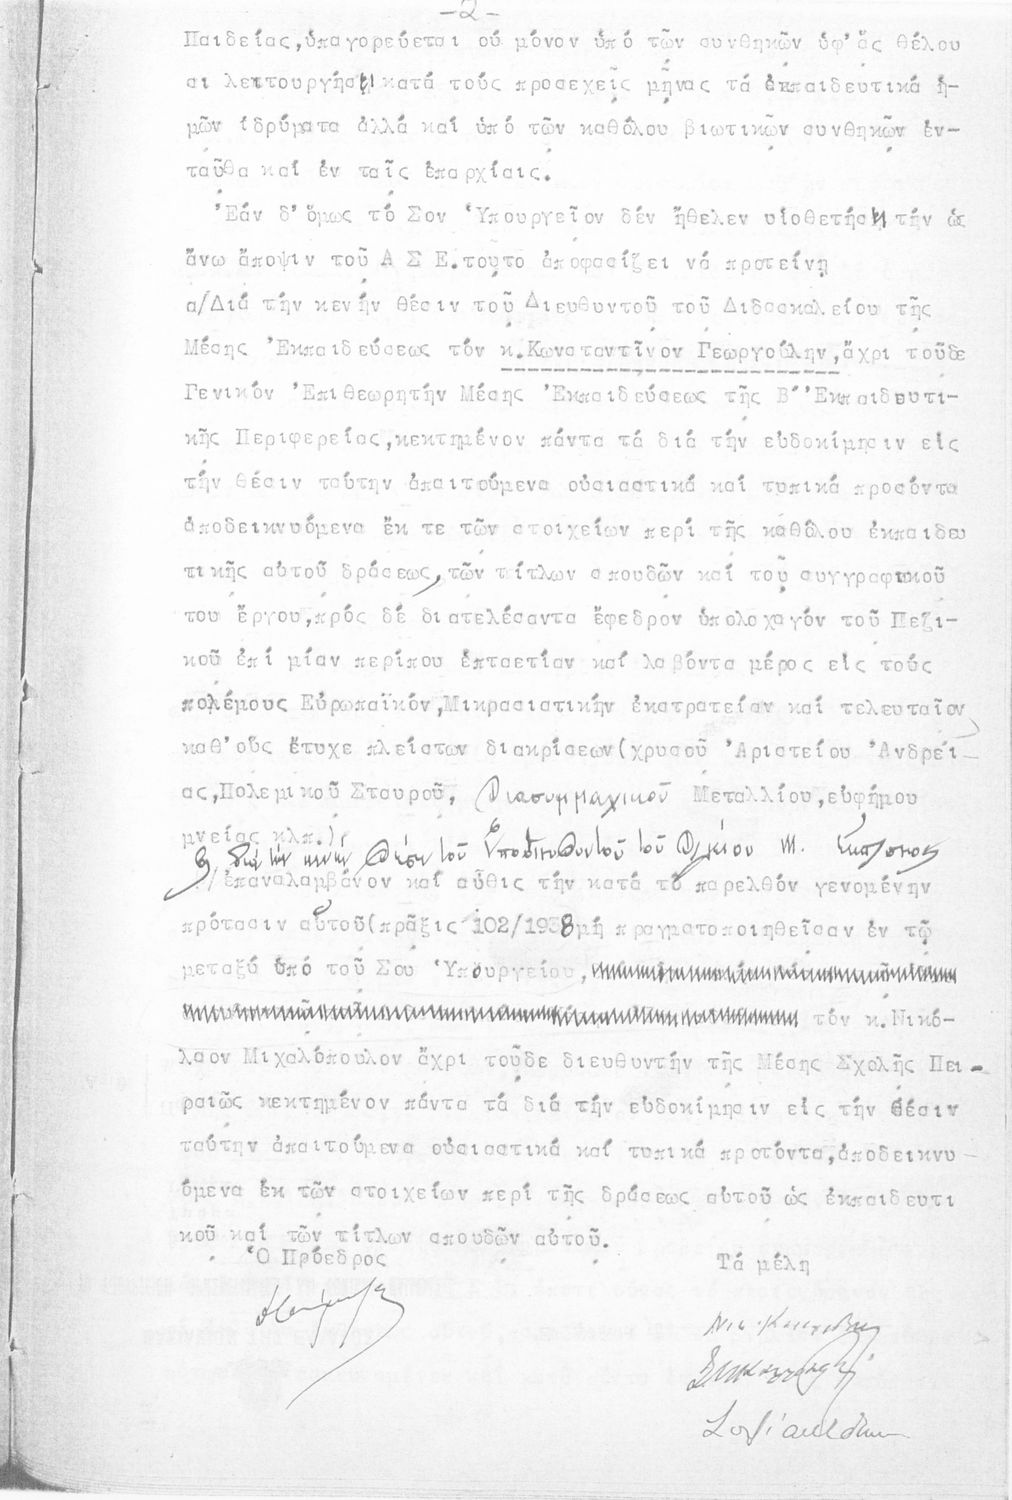 -2-
Παιδείας,ὑπαγορεύεται οὐ μόνον ὑπό τῶν συνθηκῶν ὑφ'ἅς θέλου
σι λειτουργήσῃ κατά τούς προσεχεῖς μῆνας τά ἐκπαιδευτικά ἡ-
μῶν ἱδρύματα ἀλλά καί ὑπό τῶν καθόλου βιωτικῶν συνθηκῶν ἐν-
ταῦθα καί ἐν ταῖς ἐπαρχίαις.
Ἐάν δ'ὅμως τό Σον Ὑπουργεῖον δέν ἤθελεν υἱοθετήσῃ τήν ὡς
ἄνω ἄποψιν τοῦ Α Σ Ε.τοῦτο ἀποφασίζει νά προτείνῃ
α/Διά τήν κενήν θέσιν τοῦ Διευθυντοῦ τοῦ Διδασκαλείου τῆς
Μέσης Ἐκπαιδεύσεως τόν κ.Κωνσταντῖνον Γεωργούλην,ἄχρι τοῦδε
Γενικόν Ἐπιθεωρητήν Μέσης Ἐκπαιδεύσεως τῆς Β' Ἐκπαιδευτι-
κῆς Περιφερείας,κεκτημένον πάντα τά διά τήν εὐδοκίμησιν εἰς
τήν θέσιν ταύτην ἀπαιτούμενα οὐσιαστικά καί τυπικά προσόντα
ἀποδεικνυόμενα ἔκ τε τῶν στοιχείων περί τῆς καθόλου ἐκπαιδευ
τικῆς αὐτοῦ δράσεως,τῶν τίτλων σπουδῶν καί τοῦ συγγραφικοῦ
του ἔργου,πρός δέ διατελέσαντα ἔφεδρον ὑπολοχαγόν τοῦ Πεζι-
κοῦ ἐπί μίαν περίπου ἑπταετίαν καί λαβόντα μέρος εἰς τούς
πολέμους Εὐρωπαϊκόν,Μικρασιατικήν ἐκστρατείαν καί τελευταῖον
καθ'οὕς ἔτυχε πλείστων διακρίσεων(χρυσοῦ Ἀριστείου Ἀνδρεί-
ας,Πολεμικοῦ Σταυροῦ, Διασυμμαχικοῦ Μεταλλίου,εὐφήμου
μνείας κλπ.),
διά τήν κενήν θέσιν τοῦ Ὑποδιευθυντοῦ τοῦ
/ἐπαναλαμβάνον καί αὖθις τήν κατά τό παρελθόν γενομένην
πρότασιν αὐτοῦ(πρᾶξις 102/1938μή πραγματοποιηθεῖσαν ἐν τῷ
μεταξύ ὑπό τοῦ Σου Ὑπουργείου,
τόν κ.Νικό-
λαον Μιχαλόπουλον ἄχρι τοῦδε διευθυντήν τῆς Μέσης Σχολῆς Πει-
ραιῶς κεκτημένον πάντα τά διά τήν εὐδοκίμησιν εἰς τήν θέσιν
ταύτην ἀπαιτούμενα οὐσιαστικά καί τυπικά προτόντα,ἀποδεικνυ-
όμενα ἐκ τῶν στοιχείων περί τῆς δράσεως αὐτοῦ ὡς ἐκπαιδευτι
κοῦ καί τῶν τίτλων σπουδῶν αὐτοῦ.
Ὁ Πρόεδρος
Τά μέλη